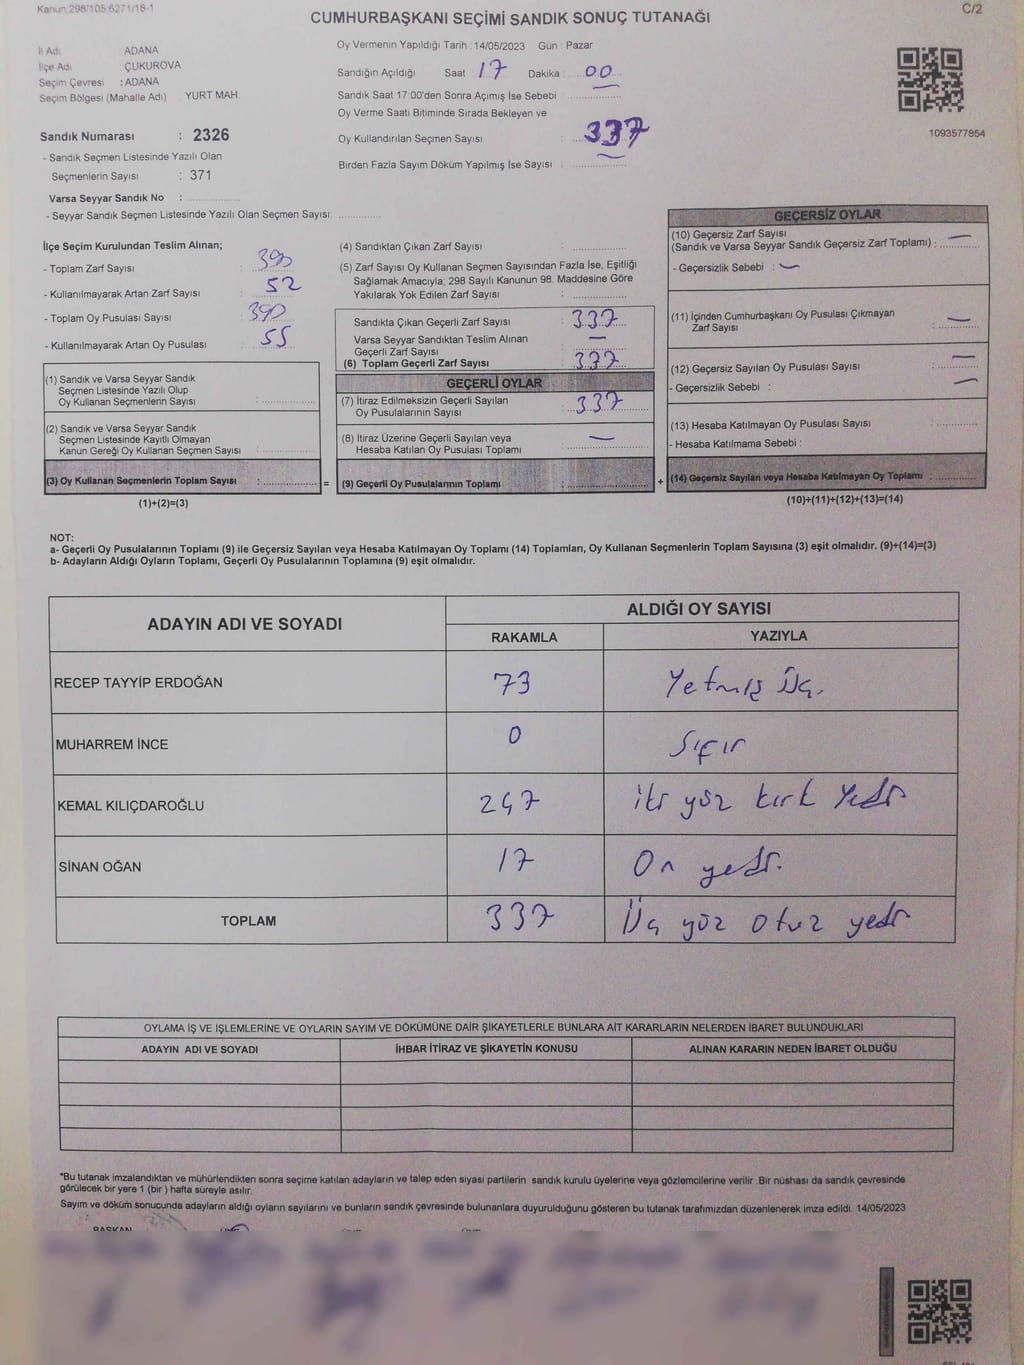 Kanun:298/105,6271/18-1
C/2
CUMHURBAŞKANI SEÇİMİ SANDIK SONUÇ TUTANAĞI
İl Adı : ADANA
İlçe Adı : ÇUKUROVA
Seçim Çevresi : ADANA
Seçim Bölgesi (Mahalle Adı) YURT MAH.
Sandık Numarası : 2326
- Sandık Seçmen Listesinde Yazılı Olan
Seçmenlerin Sayısı : 371
Varsa Seyyar Sandık No :
- Seyyar Sandık Seçmen Listesinde Yazılı Olan Seçmen Sayısı:
Oy Vermenin Yapıldığı Tarih : 14/05/2023 Gün : Pazar
Sandığın Açıldığı Saat : 17 Dakika : 00
Sandık Saat 17:00'den Sonra Açımış İse Sebebi :
Oy Verme Saati Bitiminde Sırada Bekleyen ve
Oy Kullandırılan Seçmen Sayısı : 337
Birden Fazla Sayım Döküm Yapılmış İse Sayısı :
1093577854
İlçe Seçim Kurulundan Teslim Alınan;
- Toplam Zarf Sayısı : 390
- Kullanılmayarak Artan Zarf Sayısı : 52
- Toplam Oy Pusulası Sayısı : 390
- Kullanılmayarak Artan Oy Pusulası : 55
(1) Sandık ve Varsa Seyyar Sandık
Seçmen Listesinde Yazılı Olup
Oy Kullanan Seçmenlerin Sayısı :
(2) Sandık ve Varsa Seyyar Sandık
Seçmen Listesinde Kayıtlı Olmayan
Kanun Gereği Oy Kullanan Seçmen Sayısı :
(3) Oy Kullanan Seçmenlerin Toplam Sayısı :
(1)+(2)=(3)
=
(4) Sandıktan Çıkan Zarf Sayısı :
(5) Zarf Sayısı Oy Kullanan Seçmen Sayısından Fazla İse, Eşitliği
Sağlamak Amacıyla; 298 Sayılı Kanunun 98. Maddesine Göre
Yakılarak Yok Edilen Zarf Sayısı :
Sandıkta Çıkan Geçerli Zarf Sayısı : 337
Varsa Seyyar Sandıktan Teslim Alınan
Geçerli Zarf Sayısı : —
(6) Toplam Geçerli Zarf Sayısı : 337
GEÇERLİ OYLAR
(7) İtiraz Edilmeksizin Geçerli Sayılan
Oy Pusulalarının Sayısı : 337
(8) İtiraz Üzerine Geçerli Sayılan veya
Hesaba Katılan Oy Pusulası Toplamı : —
(9) Geçerli Oy Pusulalarının Toplamı :
+
GEÇERSİZ OYLAR
(10) Geçersiz Zarf Sayısı
(Sandık ve Varsa Seyyar Sandık Geçersiz Zarf Toplamı) : —
- Geçersizlik Sebebi : —
(11) İçinden Cumhurbaşkanı Oy Pusulası Çıkmayan
Zarf Sayısı : —
(12) Geçersiz Sayılan Oy Pusulası Sayısı : —
- Geçersizlik Sebebi : —
(13) Hesaba Katılmayan Oy Pusulası Sayısı :
- Hesaba Katılmama Sebebi :
(14) Geçersiz Sayılan veya Hesaba Katılmayan Oy Toplamı :
(10)+(11)+(12)+(13)=(14)
NOT:
a- Geçerli Oy Pusulalarının Toplamı (9) ile Geçersiz Sayılan veya Hesaba Katılmayan Oy Toplamı (14) Toplamları, Oy Kullanan Seçmenlerin Toplam Sayısına (3) eşit olmalıdır. (9)+(14)=(3)
b- Adayların Aldığı Oyların Toplamı, Geçerli Oy Pusulalarının Toplamına (9) eşit olmalıdır.
ADAYIN ADI VE SOYADI
ALDIĞI OY SAYISI
RAKAMLA YAZIYLA
RECEP TAYYİP ERDOĞAN 73 Yetmiş Üç.
MUHARREM İNCE 0 Sıfır
KEMAL KILIÇDAROĞLU 247 iki yüz kırk Yedi
SİNAN OĞAN 17 On yedi.
TOPLAM 337 Üç yüz otuz yedi
OYLAMA İŞ VE İŞLEMLERİNE VE OYLARIN SAYIM VE DÖKÜMÜNE DAİR ŞİKAYETLERLE BUNLARA AİT KARARLARIN NELERDEN İBARET BULUNDUKLARI
ADAYIN ADI VE SOYADI İHBAR İTİRAZ VE ŞİKAYETİN KONUSU ALINAN KARARIN NEDEN İBARET OLDUĞU
*Bu tutanak imzalandıktan ve mühürlendikten sonra seçime katılan adayların ve talep eden siyasi partilerin sandık kurulu üyelerine veya gözlemcilerine verilir. Bir nüshası da sandık çevresinde
görülecek bir yere 1 (bir) hafta süreyle asılır.
Sayım ve döküm sonucunda adayların aldığı oyların sayılarını ve bunların sandık çevresinde bulunanlara duyurulduğunu gösteren bu tutanak tarafımızdan düzenlenerek imza edildi. 14/05/2023
BAŞKAN